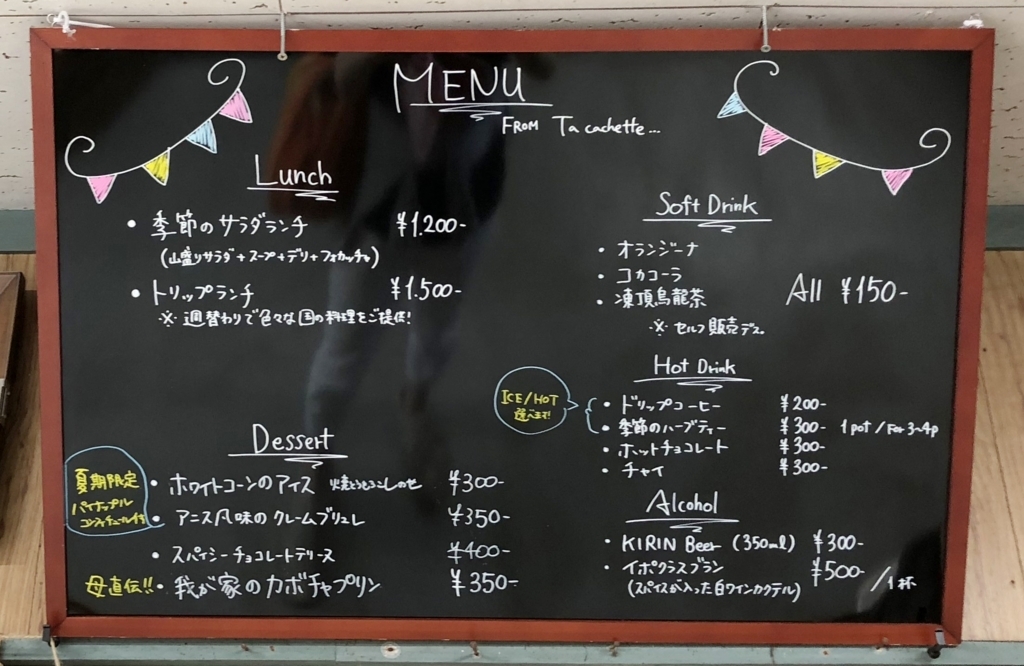 MENU
FROM Ta cachette...
Lunch
・季節のサラダランチ ¥1.200-
(山盛りサラダ+スープ+デリ+フォカッチャ)
・トリップランチ ¥1.500-
※ 週替わりで色々な国の料理をご提供!
Dessert
夏期限定
パイナップル
コンフィチュール付き
・ホワイトコーンのアイス 焼とうもろこしのせ ¥300-
・アニス風味のクレームブリュレ ¥350-
・スパイシーチョコレートテリーヌ ¥400-
母直伝!!・我が家のカボチャプリン ¥350-
Soft Drink
・オランジーナ
・コカコーラ
・凍頂烏龍茶
All ¥150-
※ セルフ販売デス。
Hot Drink
ICE/HOT
選べます!
・ドリップコーヒー ¥200-
・季節のハーブティー ¥300- 1pot/For 3~4p
・ホットチョコレート ¥300-
・チャイ ¥300-
Alcohol
・KIRIN Beer (350ml) ¥300-
・イポクラスブラン ¥500-/1杯
(スパイスが入った白ワインカクテル)